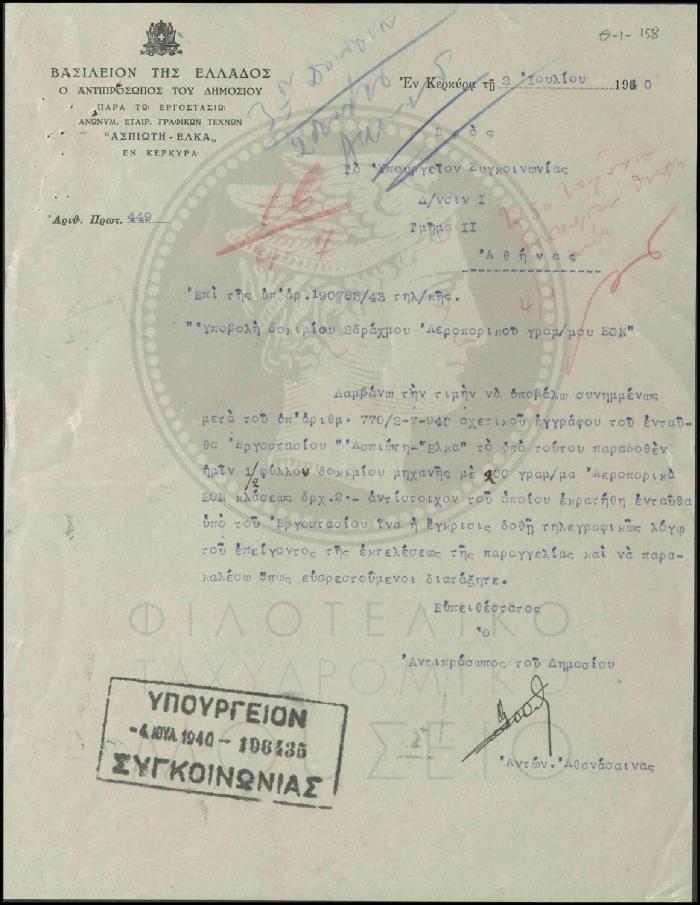 Θ-1-158
ΒΑΣΙΛΕΙΟΝ ΤΗΣ ΕΛΛΑΔΟΣ
Ο ΑΝΤΙΠΡΟΣΩΠΟΣ ΤΟΥ ΔΗΜΟΣΙΟΥ
ΠΑΡΑ ΤΩ ΕΡΓΟΣΤΑΣΙΩ
ΑΝΩΝΥΜ. ΕΤΑΙΡ. ΓΡΑΦΙΚΩΝ ΤΕΧΝΩΝ
"ΑΣΠΙΩΤΗ - ΕΛΚΑ"
ΕΝ ΚΕΡΚΥΡΑ
Ἐν Κερκύρᾳ τῇ 2 Ἰουλίου 1940
Πρὸς
Τὸ Ὑπουργεῖον Συγκοινωνίας
Δ/νσιν I
Τμῆμα II
Ἀθήνας
Ἀριθ. Πρωτ. 449
16
7
4
Ἐπὶ τῆς ὑπ'ἀρ.190782/43 τηλ/κῆς.
"Ὑποβολὴ δοκιμίου 2δράχμου Ἀεροπορικοῦ γραμ/μου ΕΟΝ"
Λαμβάνω τὴν τιμὴν νὰ ὑποβάλω συνημμένως
μετὰ τοῦ ὑπ'ἀριθμ. 770/2-7-940 σχετικοῦ ἐγγράφου τοῦ ἐνταῦ-
θα Ἐργοστασίου "Ἀσπιώτη-Ἔλκα" τὸ ὑπὸ τούτου παραδοθὲν
ἡμῖν 1/2 φύλλον δοκιμίου μηχανῆς μὲ 200 γραμ/μα Ἀεροπορικὰ
ΕΟΝ κλάσεως δρχ.2.- ἀντίστοιχον τοῦ ὁποίου ἐκρατήθη ἐνταῦθα
ὑπὸ τοῦ Ἐργοστασίου ἵνα ἡ ἔγκρισις δοθῇ τηλεγραφικῶς λόγῳ
τοῦ ἐπείγοντος τῆς ἐκτελέσεως τῆς παραγγελίας καὶ νὰ παρα-
καλέσω ὅπως εὐαρεστούμενοι διατάξητε.
Εὐπειθέστατος
Ὁ
Ἀντιπρόσωπος τοῦ Δημοσίου
Ἀντών. Ἀθανάσαινας
ΥΠΟΥΡΓΕΙΟΝ
-4 ΙΟΥΛ. 1940 - 196435
ΣΥΓΚΟΙΝΩΝΙΑΣ
ΦΙΛΟΤΕΛΙΚΟ
ΤΑΧΥΔΡΟΜΙΚΟ
ΜΟΥΣΕΙΟ